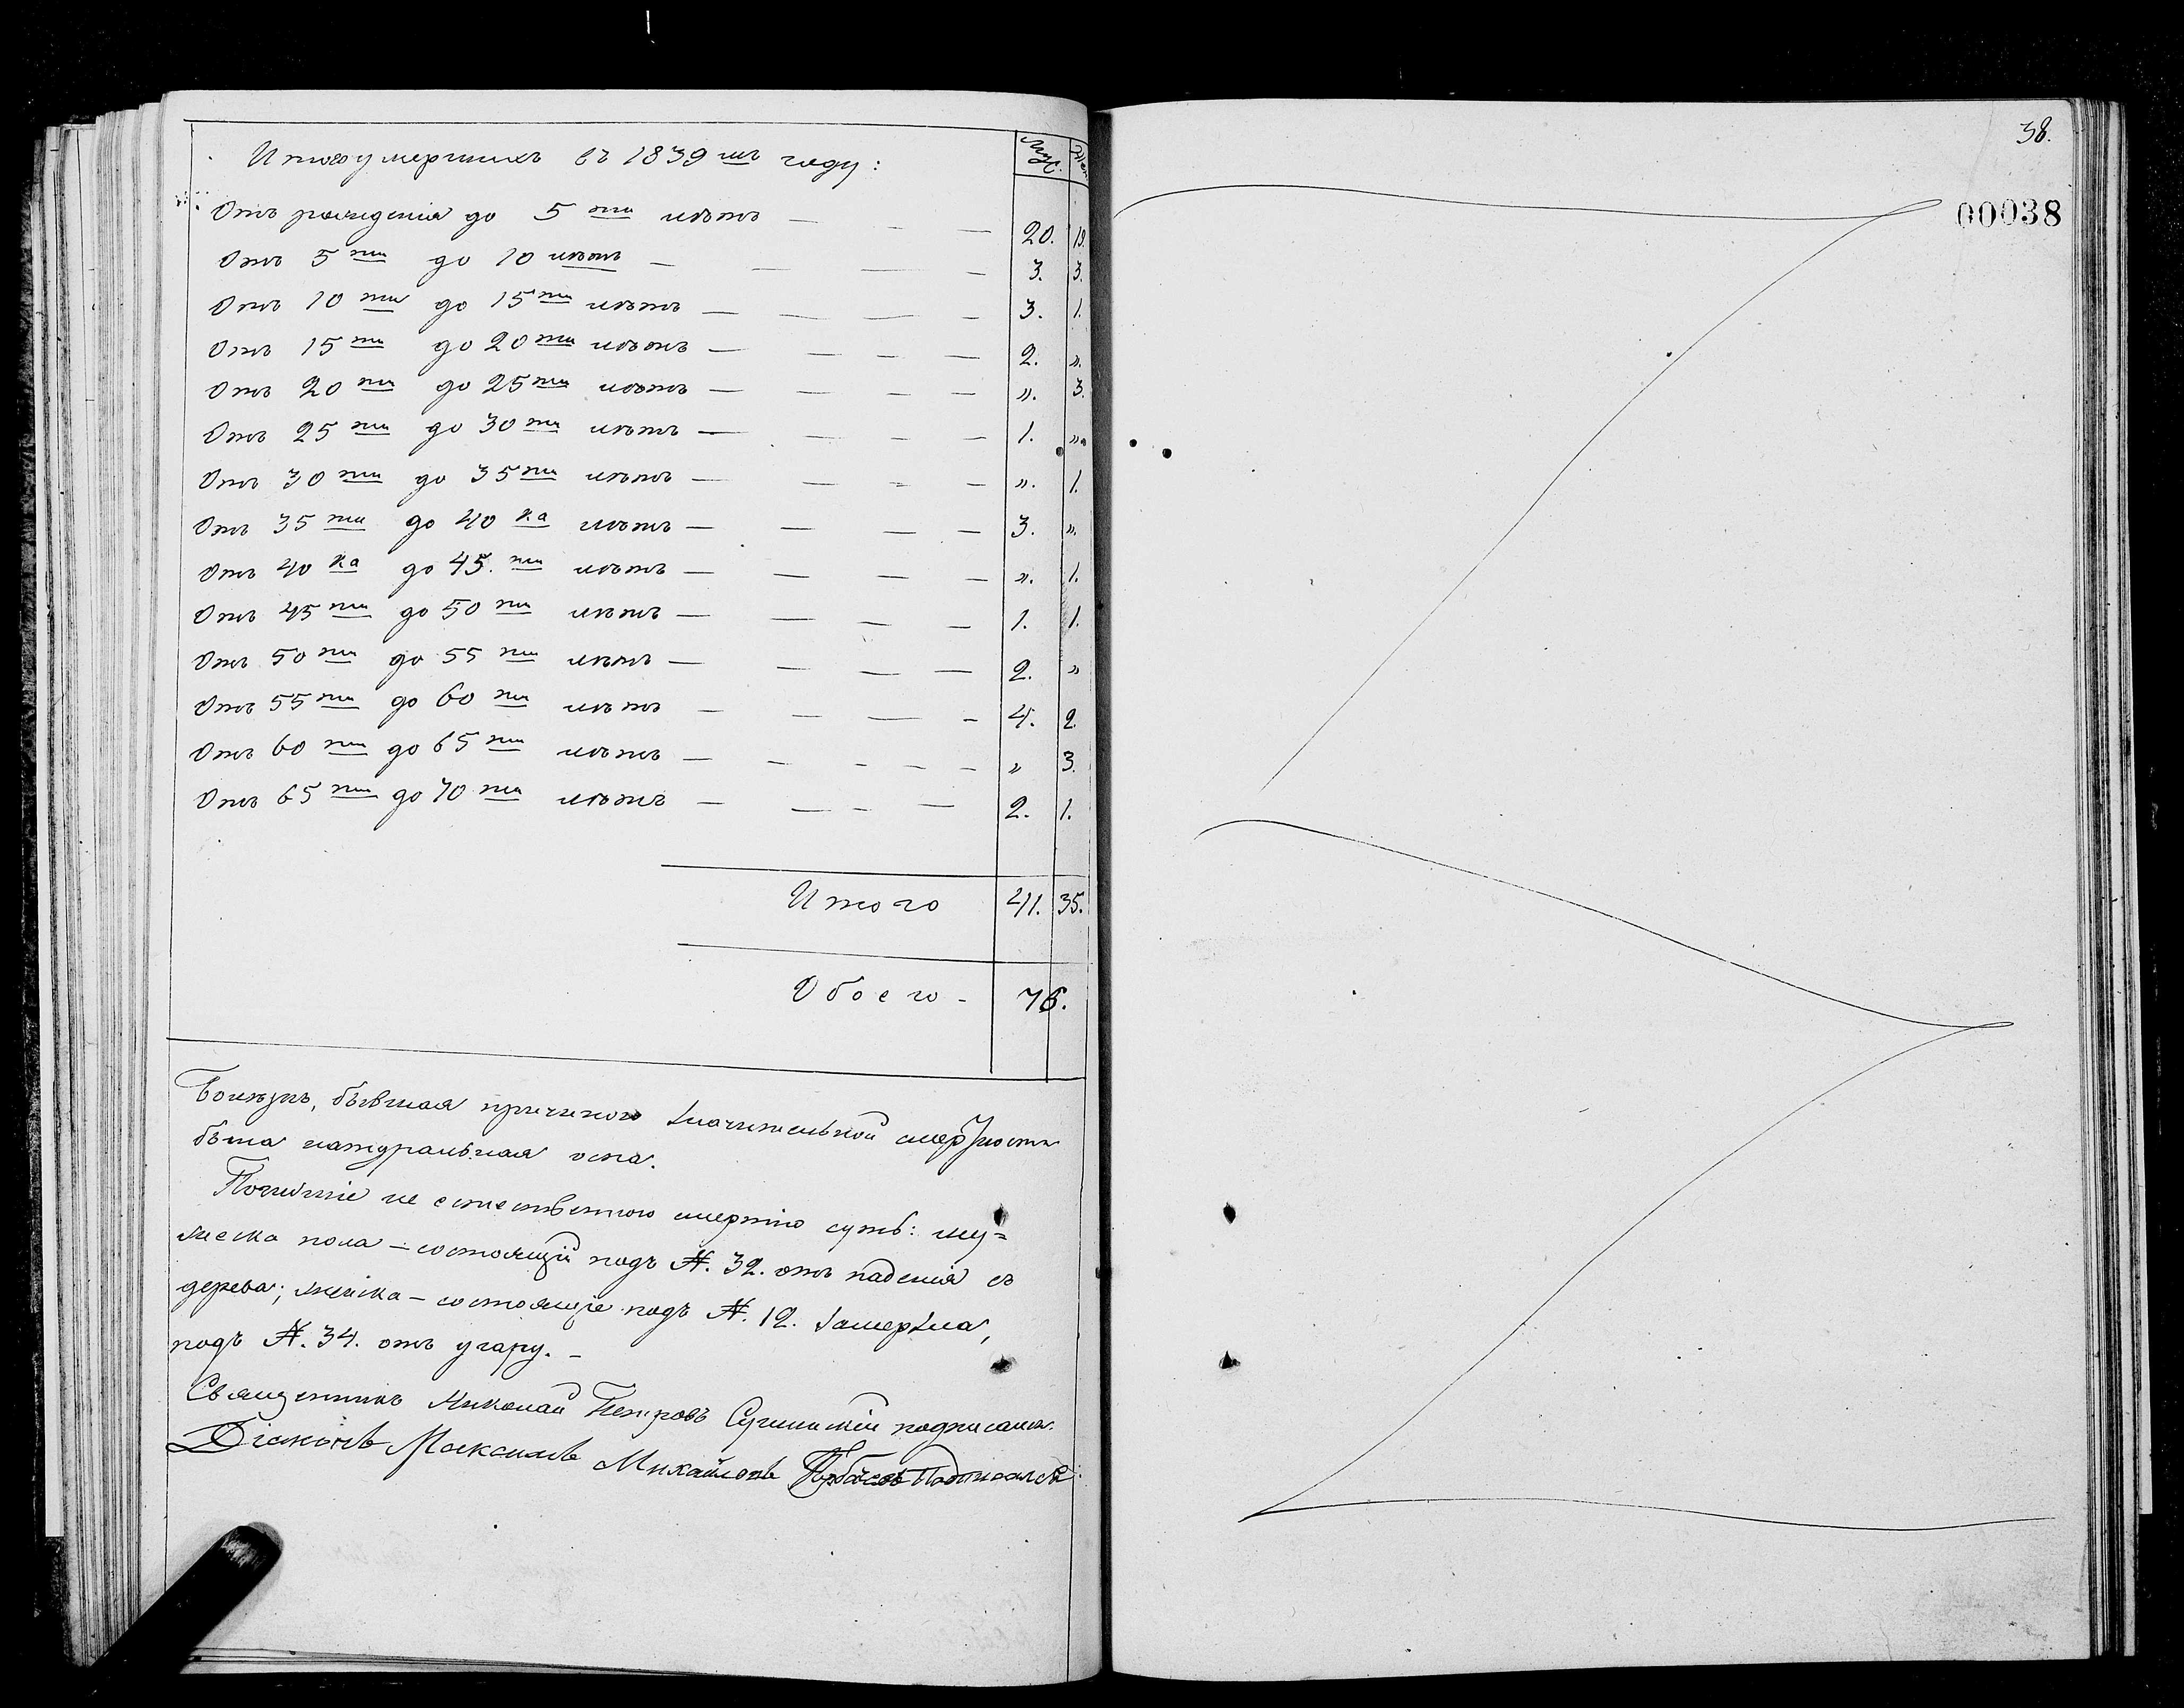 Итого умершихъ въ 1839мъ году: Муж. Жен.
Отъ рожденія до 5ти лѣтъ — — — 20. 19.
Отъ 5ти до 10 лѣтъ — — — — 3. 3.
Отъ 10ти до 15ти лѣтъ — — — — 3. 1.
Отъ 15ти до 20ти лѣтъ — — — — 2. „.
Отъ 20ти до 25ти лѣтъ — — — — „. 3.
Отъ 25ти до 30ти лѣтъ — — — — 1. „.
Отъ 30ти до 35ти лѣтъ — — — — „. 1.
Отъ 35ти до 40ка лѣтъ — — — — 3. „.
Отъ 40ка до 45.ти лѣтъ — — — — „. 1.
Отъ 45ти до 50ти лѣтъ — — — — 1. 1.
Отъ 50ти до 55ти лѣтъ — — — — 2. „
Отъ 55ти до 60ти лѣтъ — — — — 4. 2.
Отъ 60ти до 65ти лѣтъ — — — — — „ 3.
Отъ 65ти до 70ти лѣтъ — — — — 2. 1.
Итого 41. 35.
Обоего - 76.
Болѣзнь, бывшая причиною значительной смертности
была натуральная оспа.
Погибшіе не естественною смертію суть: му=
жеска пола — состоящій подъ №. 32. отъ паденія съ
дерева; женска — состоящіе подъ №. 12. замерзла,
подъ №. 34. отъ угару. —
Священникъ Николай Петровъ подписался.
Діаконъ Максимъ Михайловъ подписался.
38.
00038